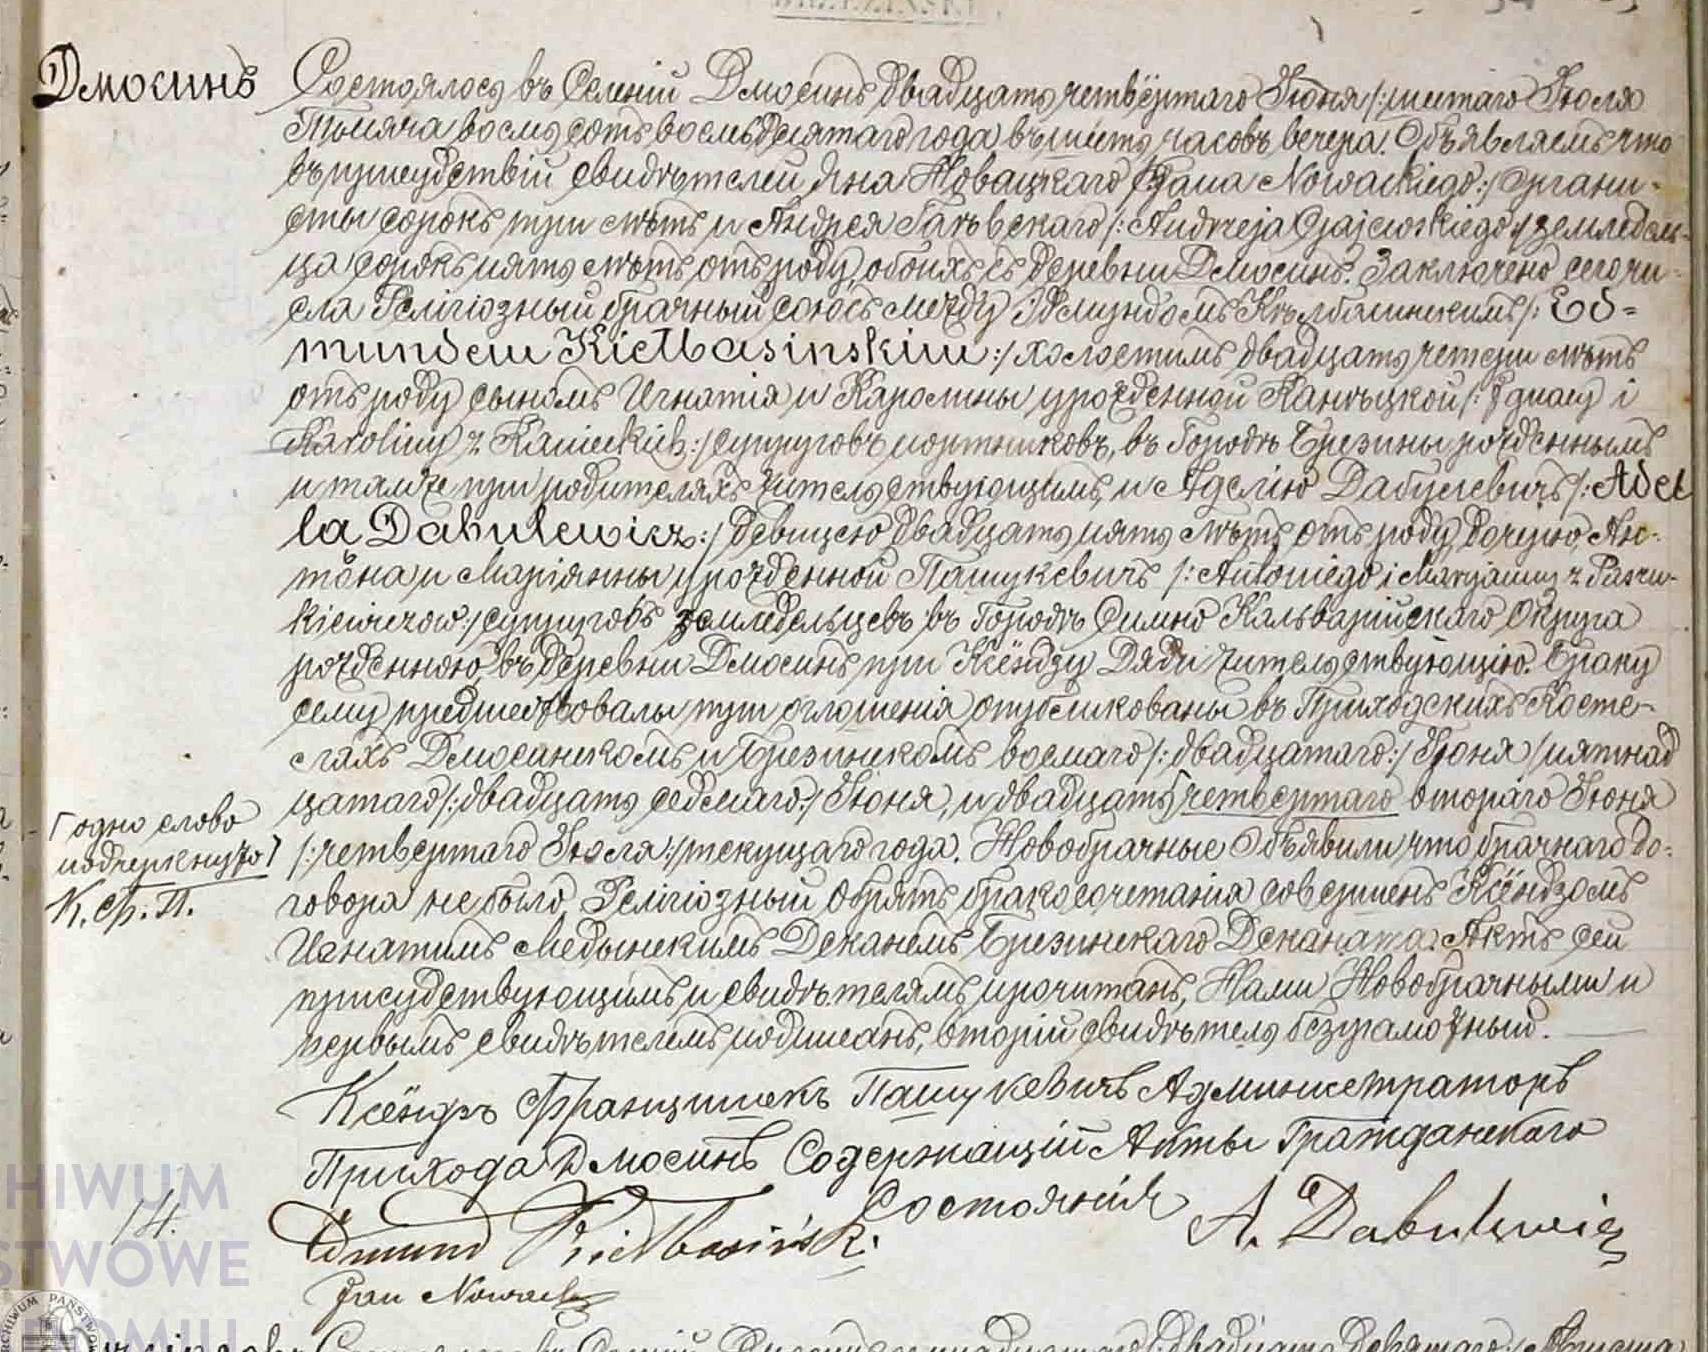 BRZEZINSKI
Дмосинъ
Состоялось въ Селеніи Дмосинъ двадцать четвёртаго Іюня /:шестаго Іюля
Тысяча восмь сотъ восмьдесятаго года въ шесть часовъ вечера. Объявляемъ что
въ присудствіи свидѣтелей Яна Новацкаго /:Jana Nowackiego:/ Органи-
сты сорокъ три лѣтъ и Андрея Гаѣвскаго /:Andrzeja Gajewskiego:/ земледель-
ца сорокъ пять лѣтъ отъ роду, обоихъ съ деревни Дмосинъ. Заключено сего чи-
сла Религіозный брачный союзъ между Эдмундомъ Кѣлбасинскимъ /: Ed=
mundem Kiełbasinskim:/ холостимъ двадцать четыри лѣтъ
отъ роду сыномъ Игнатія и Каролины урожденной Канѣцкой /: Ignacy i
Karoliny z Kanieckich:/ супруговъ портниковъ, въ Городѣ Брезины рожденнымъ
и тамже при родителяхъ жительствующимъ, и Аделію Дабулевичъ /: Adel
la Dabulewicz:/ девицею двадцать пять лѣтъ отъ роду, дочерію Ан-
тона и Маріянны урожденной Пашукевичъ /: Antoniego i Maryanny z Paszu-
kiewiczow:/ супруговъ земледельцевъ въ Городѣ Симно Кальварійскаго Округа
рожденною, въ деревни Дмосинъ при Ксёндзу Дяди жительствующію. Браку
сему предшествовалы три оглошенія опубликованы въ Приходскихъ Косте-
лахъ Дмосинскомъ и Брезинскомъ восмаго /: двадцатаго:/ Іюня, пятнад
цатаго /:двадцать седмаго:/ Іюня, и двадцать [четвертаго второго Іюня
/:четвертаго Іюля:/ текущаго года. Новобрачные Объявили что брачнаго до-
говора не было. Религіозный Обрядъ бракосочетанія совершенъ Ксёндзомъ
Игнатимъ Медынскимъ Деканемъ Брезинскаго Деканата. Актъ сей
присудствующимъ и свидѣтелямъ прочитанъ, Нами Новобрачными и
первымъ свидѣтелемъ подписанъ, вторій свидѣтель безграмотный.
[одно слово
подчеркнуто]
К. Ф. П.
Ксёндзъ Францишекъ Пашукевичъ Администраторъ
Прихода Дмосинъ Содержащій Акты Гражданского
Состоянія
14.
Edmund Kiełbasiński.
A. Dabulewicz
Jan Nowacki
ARCHIWUM
PAŃSTWOWE